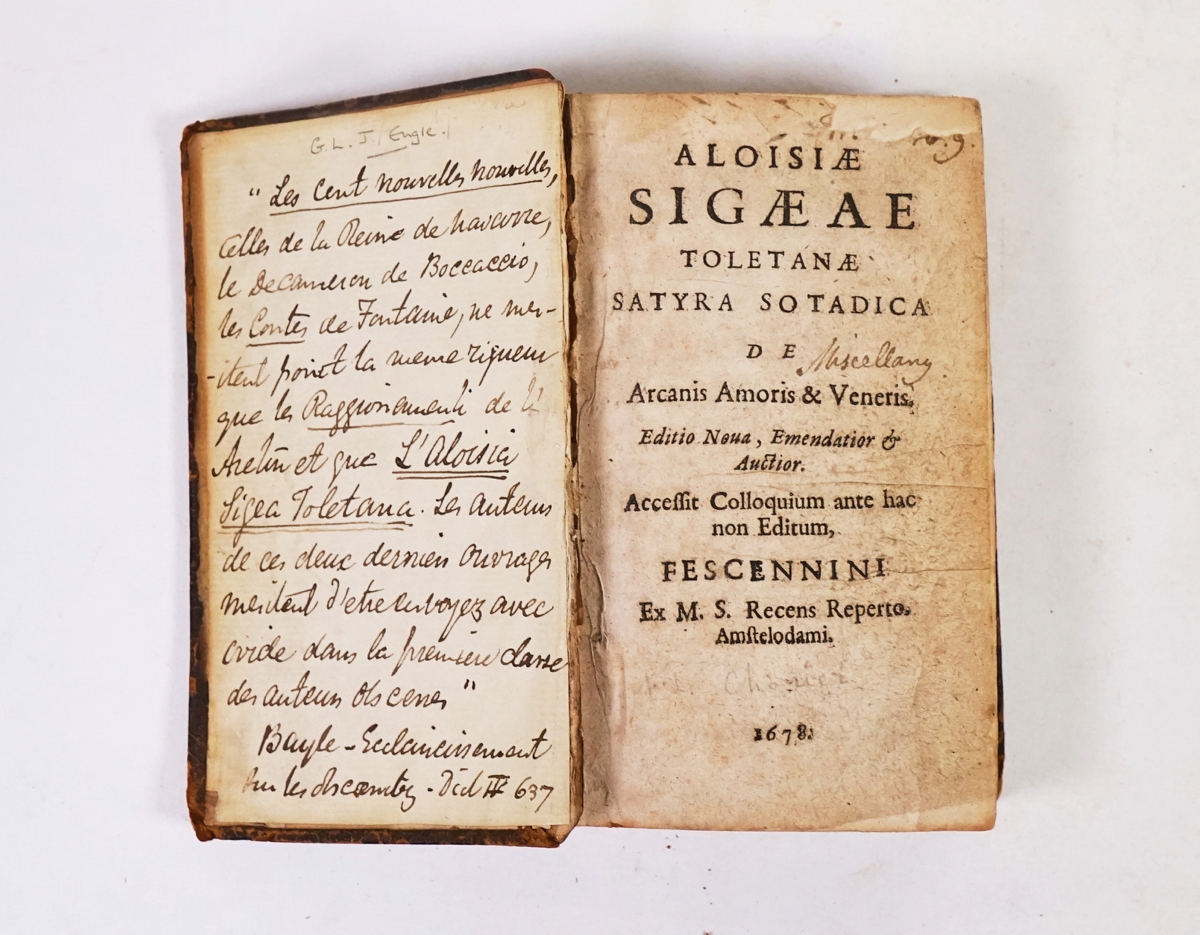 G. L. J. Engle.
" Les Cent nouvelles nouvelles,
Celles de la Reine de Navarre,
le Decameron de Boccaccio,
les Contes de Fontaine, ne mer-
-itent point la meme rigueur
que les Raggionamenti de l'
Aretin et que L'Aloisia
Sigea Toletana. Les auteurs
de ces deux derniers ouvrages
meritent d'etre envoyez avec
Ovide dans la premiere classe
des auteurs obscenes "
Bayle - Eclaircissement
sur les obscenitez - Dict IV 637
ALOISIÆ
SIGÆAE
TOLETANÆ
SATYRA SOTADICA
DE Miscellany
Arcanis Amoris & Veneris.
Editio Noua, Emendatior &
Auctior.
Accessit Colloquium ante hac
non Editum,
FESCENNINI
Ex M. S. Recens Reperto.
Amstelodami.
Chorier
1678.